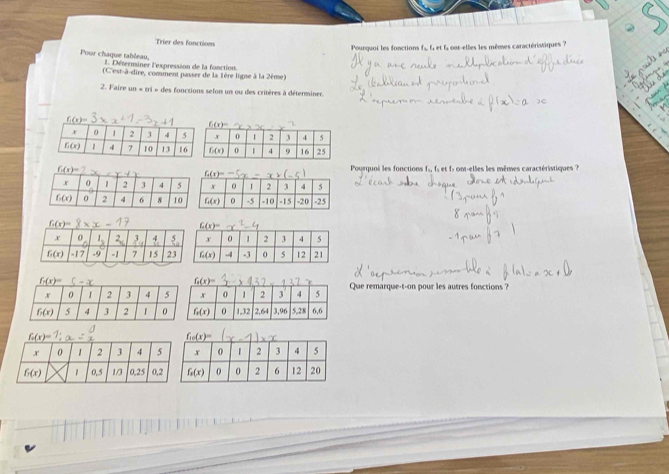 Trier des fonctions
Pour chaque tableau,
1. Déterminer l'expression de la fonction.
(C'est-à-dire, comment passer de la 1ère ligne à la 2ème)
2. Faire un « tri » des fonctions selon un ou des critères à déterminer.
f₁(x)= 3 x x + 1 = 3x + 1
x 0 1 2 3 4 5
f₁(x) 1 4 7 10 13 16
f₂(x)= x × x = x²
x 0 1 2 3 4 5
f₂(x) 0 1 4 9 16 25
f₃(x)=
x 0 1 2 3 4 5
f₃(x) 0 2 4 6 8 10
f₄(x)= -5x = x × (-5)
x 0 1 2 3 4 5
f₄(x) 0 -5 -10 -15 -20 -25
f₅(x)= 8 × x - 17
x 0 1 2 3 4 5
f₅(x) -17 -9 -1 7 15 23
f₆(x)= x² - 4
x 0 1 2 3 4 5
f₆(x) -4 -3 0 5 12 21
f₇(x)= 5 - x
x 0 1 2 3 4 5
f₇(x) 5 4 3 2 1 0
f₈(x)=
x 0 1 2 3 4 5
f₈(x) 0 1,32 2,64 3,96 5,28 6,6
f₉(x)= 1 : x =
x 0 1 2 3 4 5
f₉(x) 1 0,5 1/3 0,25 0,2
f₁₀(x)= (x - 1) × x
x 0 1 2 3 4 5
0 0 2 6 12 20
Pourquoi les fonctions f₃, f₄ et f₈ ont-elles les mêmes caractéristiques ?
Il y a une seule multiplication d'effectuée
proportionnel
L'expression ressemble à f(x) = a x
Pourquoi les fonctions f₁, f₅ et f₇ ont-elles les mêmes caractéristiques ?
L'écart entre chaque
(3 pour f1
8 pour f5
-1 pour f7 )
L'expression ressemble à f(x) = a x + b
Que remarque-t-on pour les autres fonctions ?